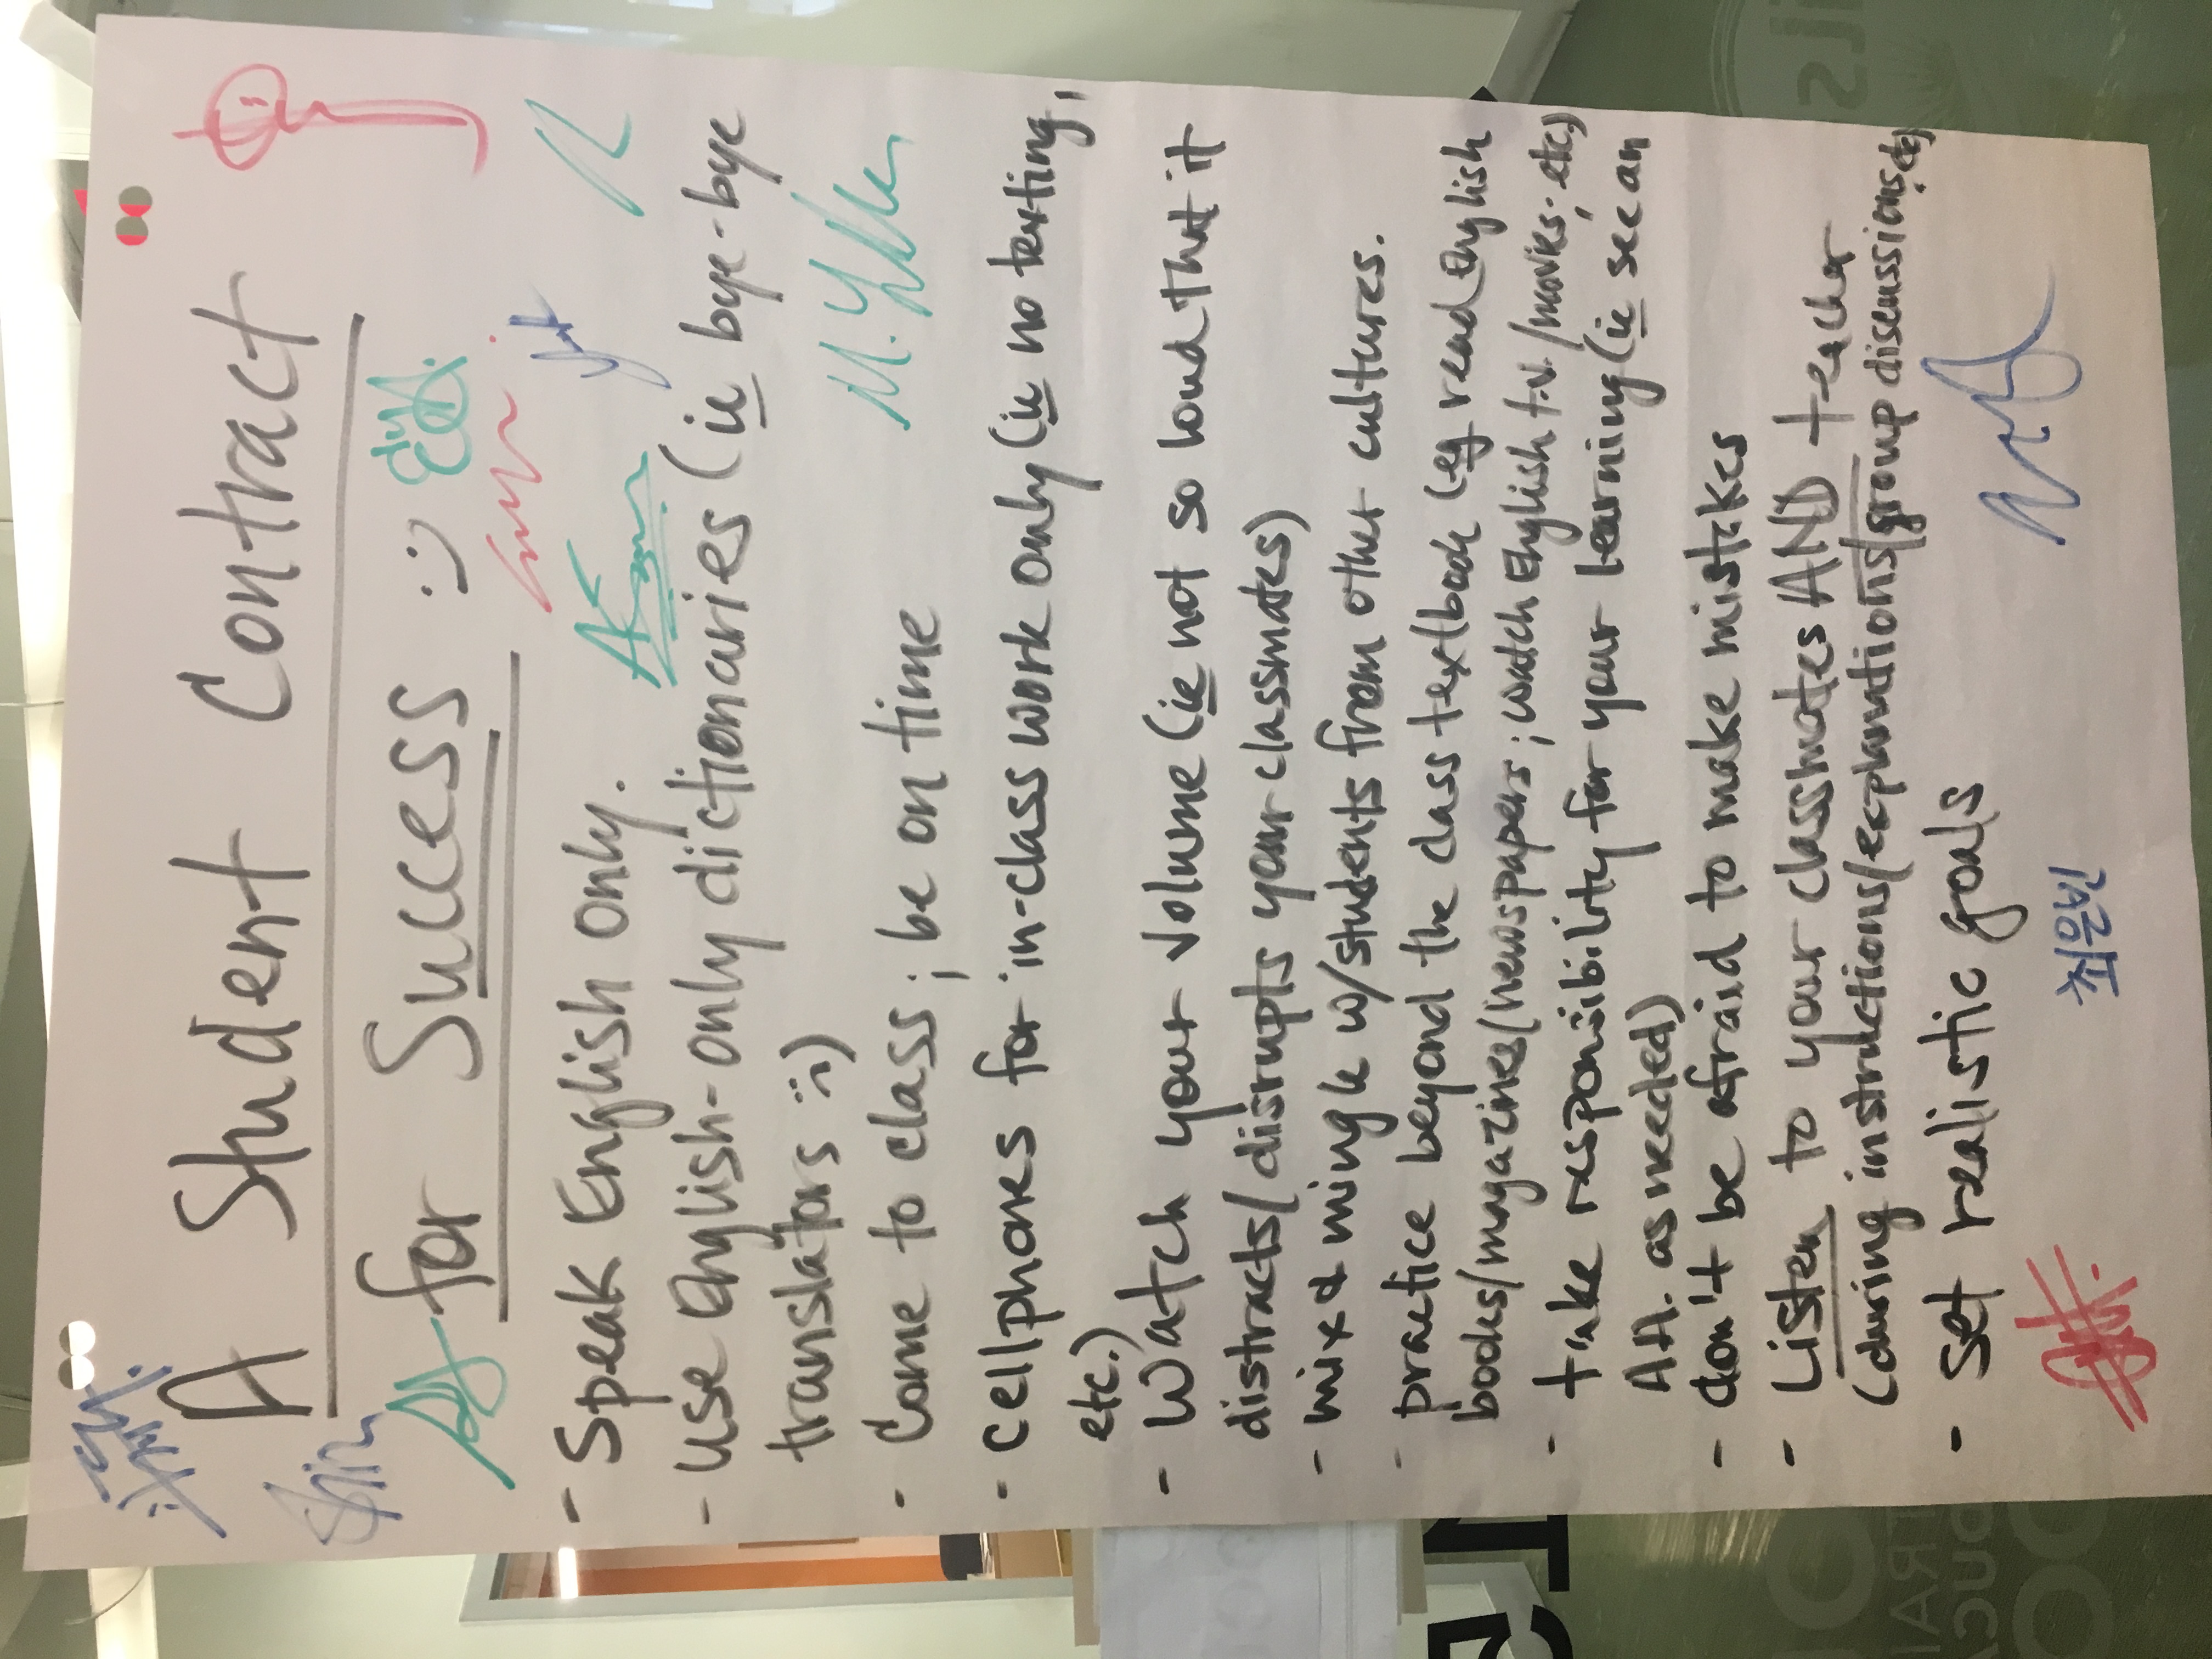 A Student Contract
for Success :)
- Speak English only.
- Use English-only dictionaries (ie bye-bye
translators :~)
- Come to class; be on time
- Cellphones for in-class work only (ie no texting,
etc.)
- Watch your volume (ie not so loud that it
distracts/disrupts your classmates)
- mix & mingle w/students from other cultures.
- practice beyond the class textbook (eg read English
books/magazines/newspapers; watch English t.v./movies; etc)
- take responsibility for your learning (ie see an
AA. as needed)
- don't be afraid to make mistakes
- Listen to your classmates AND teacher
(during instructions/explanations/group discussions, etc)
- Set realistic goals
M. Yılla
최은심